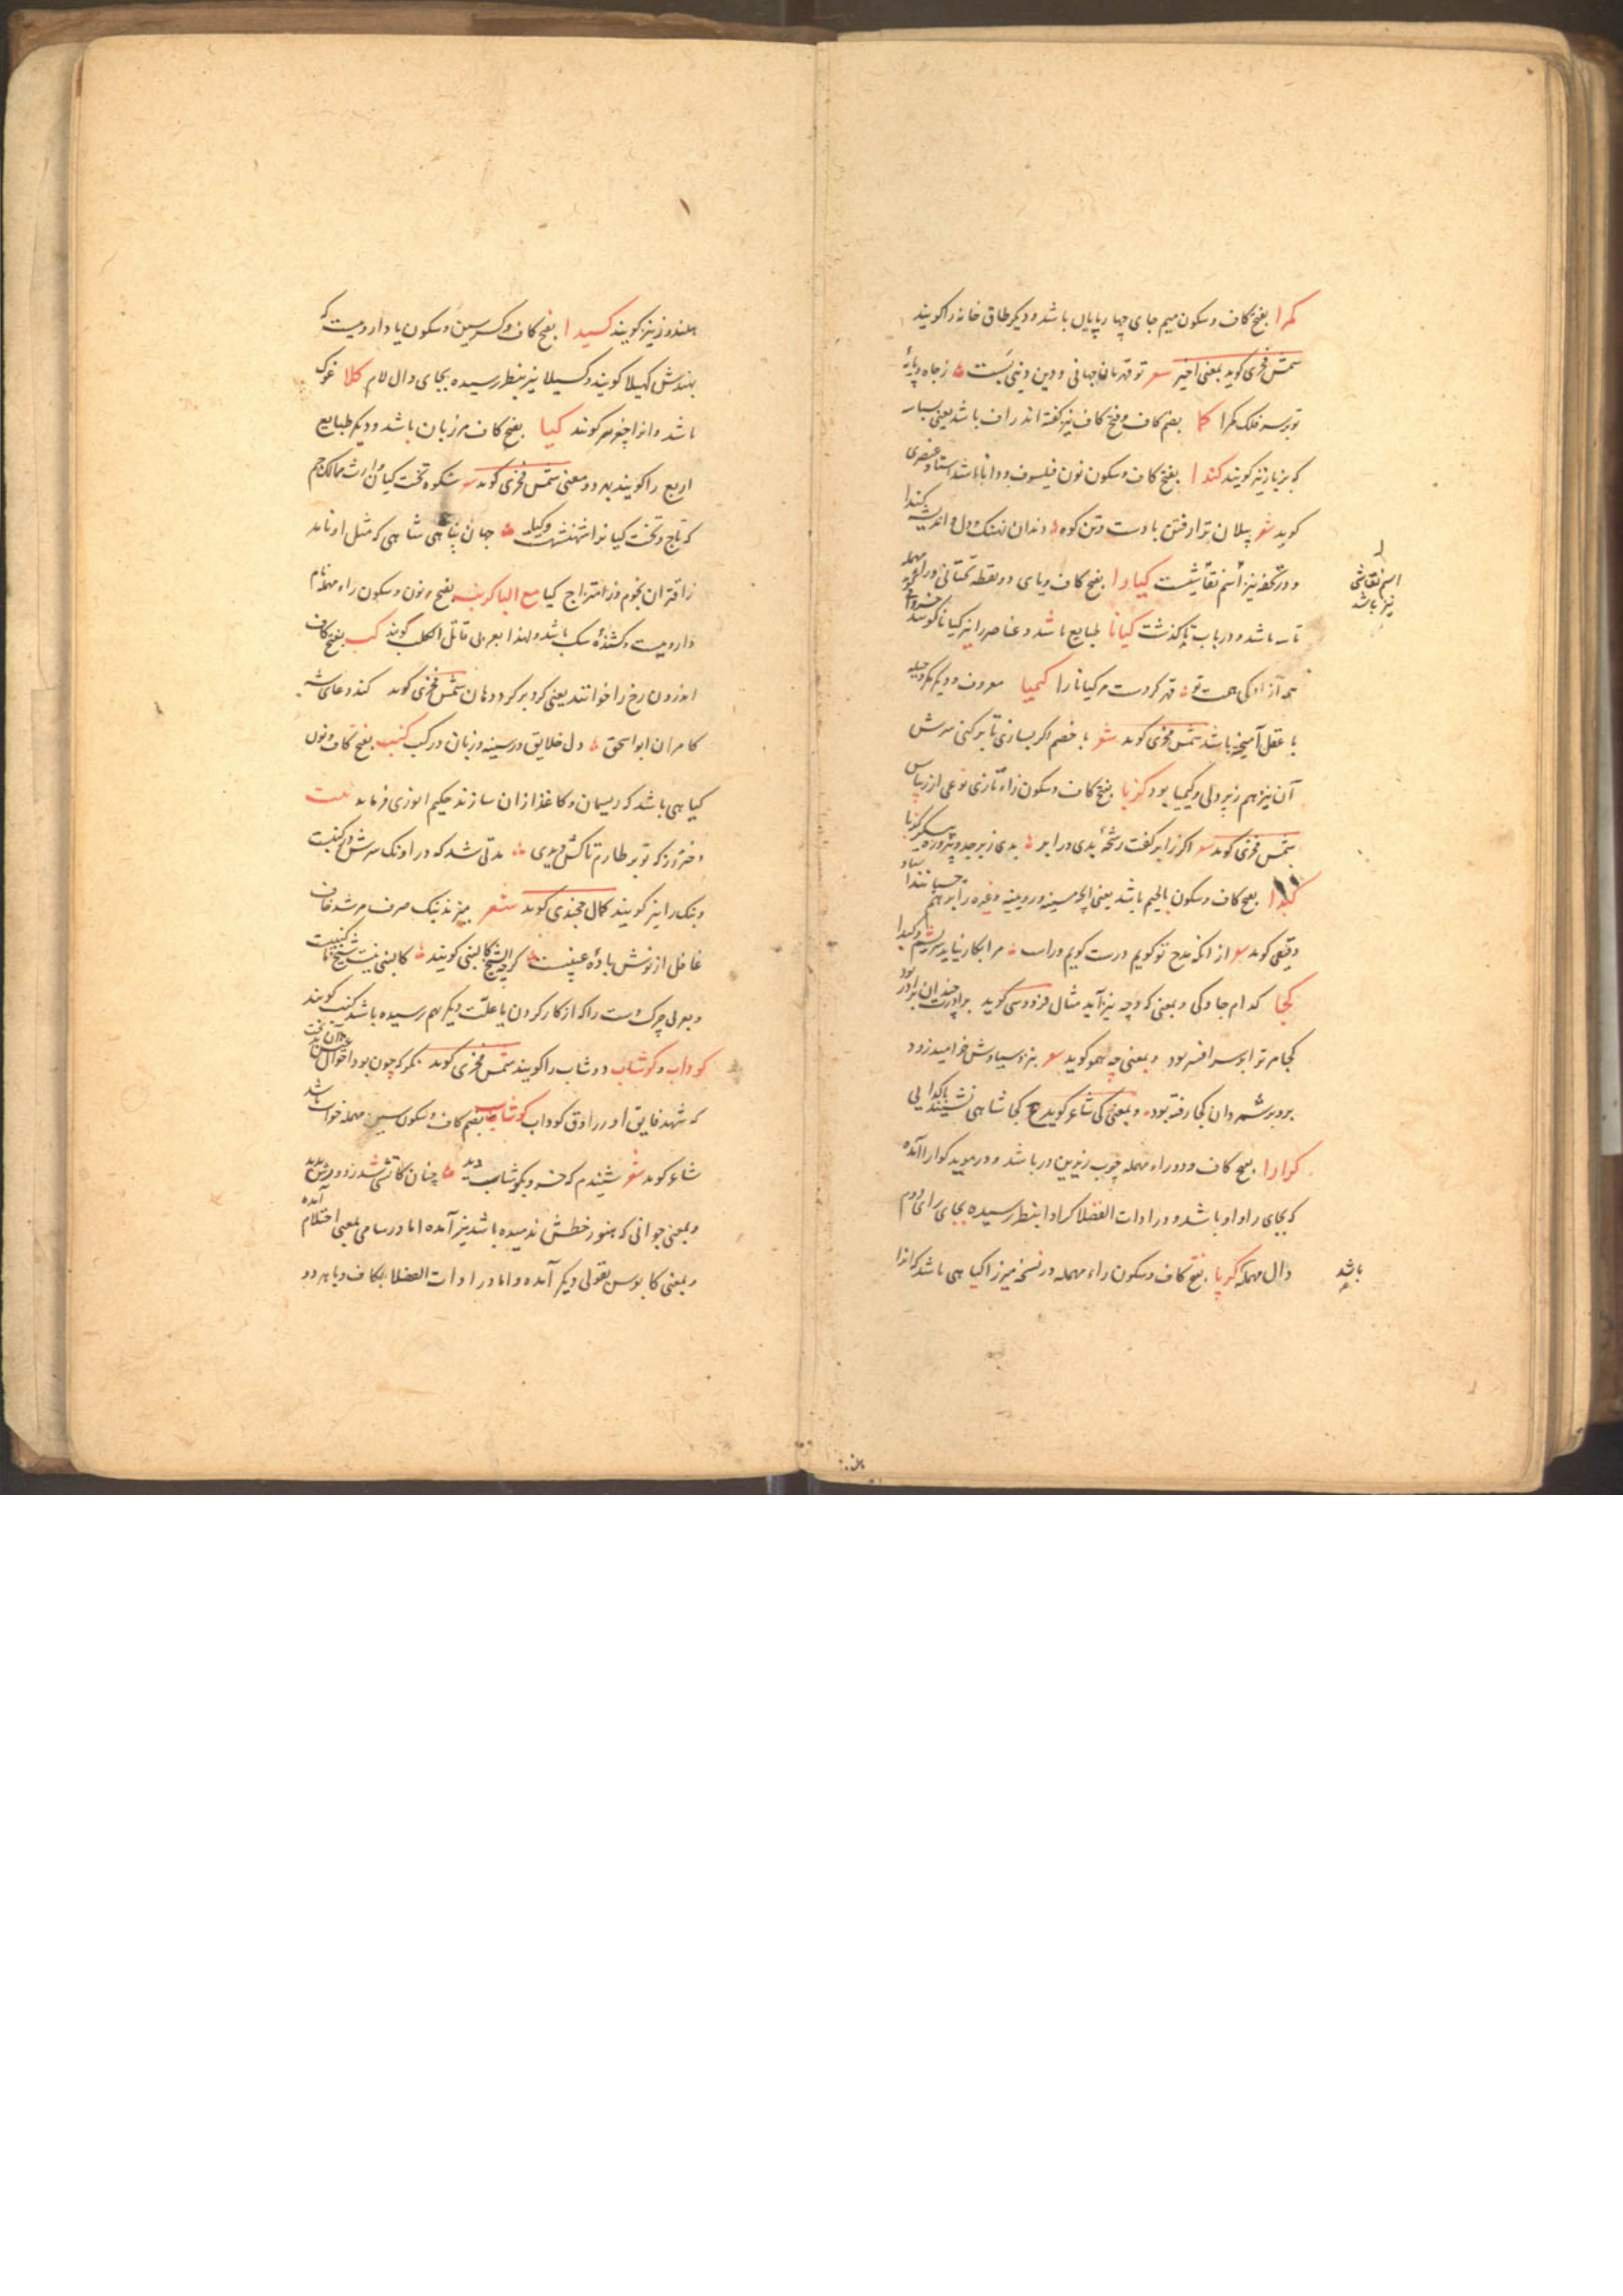 کمرا بفتح کاف و سکون میم جای چهار پایان باشد و دیگر طاق خانه را گویند
شمس فخری گوید بمعنی اخیر شعر تو قهرمان جهانی و دین و دنیی بتست زجاه و پایهٔ
تو بر سر فلک کمرا کما بضم کاف و فتح کاف نیز گفته اند
که بزبان نیز گویند کندا بفتح کاف و سکون نون فیلسوف و دانا باشد استاد عنصری
گوید شعر پیلان ترا رفتن بادست و تن کوه دندان نهنگ و دل و اندیشه کندا
و در تحفه نیز اسم نقاشیست کیارا بفتح کاف و یای دو نقطه تحتانی و راء مهمله
تاسه باشد و در باب تا گذشت کیانا طبایع باشد و عناصر را نیز کیانا گویند خسروانی
همه آزادگی همت تو قهر کردست مر کیانا را کیمیا معروف و دیگر مکر و حیله
با عقل آمیخته باشد شمس فخری گوید شعر با خصم اگر بسازی تا بر کنی سرش
آن نیز هم زپر دلی و کیمیا بود کزبا بفتح کاف و سکون زاء تازی نوعی از
شمس فخری گوید شعر اگر ز ابر کفت رشحهٔ بدی در ابر بدی زبرجد و پیروزه
کبدا بفتح کاف و سکون با لحیم باشد یعنی آنچه مسینه و رویینه و غیره را بر هم چسبانند
دقیقی گوید شعر از آنکه مدح تو گویم درست گویم و راست مرا بکار نیاید سریشم و کبدا
کجا کدام جا و کی و بمعنی که و چه نیز آید مثال فردوسی گوید برادرت چندان برادر بود
کجا مر ترا بر سر افسر بود و بمعنی چه همو گوید شعر بنزد سیاوش خرامید زود
برو بر شمرد آن کجا رفته بود و بمعنی کی شاعر گوید ع کجا شاهی نشیند با گدایی
کرارا بفتح کاف و دو راء مهمله چوب زیرین در باشد و در موید کوارا آمده
که بجای را واو باشد و در ادات الفضلا کرادا بنظر رسیده بجای رای دوم
دال مهمله کرپا بفتح کاف و سکون راء مهمله در نسخه میرزا گیاهی باشد که انرا
اسم نقاشی
نیز باشد
باشد
هلندوز نیز گویند کسیدا بفتح کاف و کسر سین و سکون یا داروییست که
بهندش کهیلا گویند و کسیلا نیز بنظر رسیده بجای دال لام کلا غوک
باشد و انرا چغر هم گویند کیا بفتح کاف مرزبان باشد و دیگر طبایع
اربع را گویند بهر دو معنی شمس فخری گوید شعر شکوه تخت کیان وارث ممالک جم
که تاج و تخت کیانرا شهنشهست و کیا جهان پناهی شاهی که مثل او ناید
زاقتران نجوم و زامتزاج کیا مع الباء کرنب بفتح و نون و سکون راء مهمله نام
داروییست و کشندهٔ سگ باشد و لهذا بعربی قاتل الکلب گویند کب بفتح کاف
اندرون رخ را خوانند یعنی گرد بر گرد دهان شمس فخری گوید کند دعای شه
کامران ابو اسحق دل خلایق در سینه و زبان در کب کنب بفتح کاف و نون
گیاهی باشد که ریسمان و کاغذ از آن سازند حکیم انوری فرماید بیت
دختر رز که تو بر طارم تاکش دیدی مدتی شد که در آونگ سرش در کنبست
و بنگ را نیز گویند کمال خجندی گوید شعر
غافل از نوش بادهٔ عنبیست گرچه شیخ کابلیش گویند
و بعربی چرک دست را که از کار کردن یا علت دیگر بهم رسیده باشد کنب گویند
کوداب و کوشاب دوشاب را گویند شمس فخری گوید نگر که چون بود احوال
که شهد فایق او در رواق کوداب کوشاسب بضم کاف و سکون سین مهمله خواب باشد
شاعر گوید شعر شنیدم که خسرو بکوشاسب دید چنان کاتشی شد زدورش پدید
و بمعنی جوانی که هنوز خطش ندمیده باشد نیز آمده اما در سامی بمعنی احتلام آمده
و بمعنی کابوس بقولی دیگر آمده و اما در ادات الفضلا بکاف و با هر دو